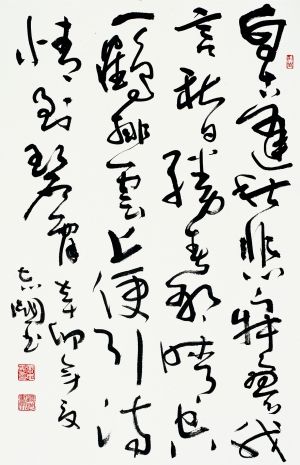 自古逢秋悲寂寥我
言秋日勝春朝晴空
一鶴排雲上便引詩
情到碧霄辛卯年夏
書